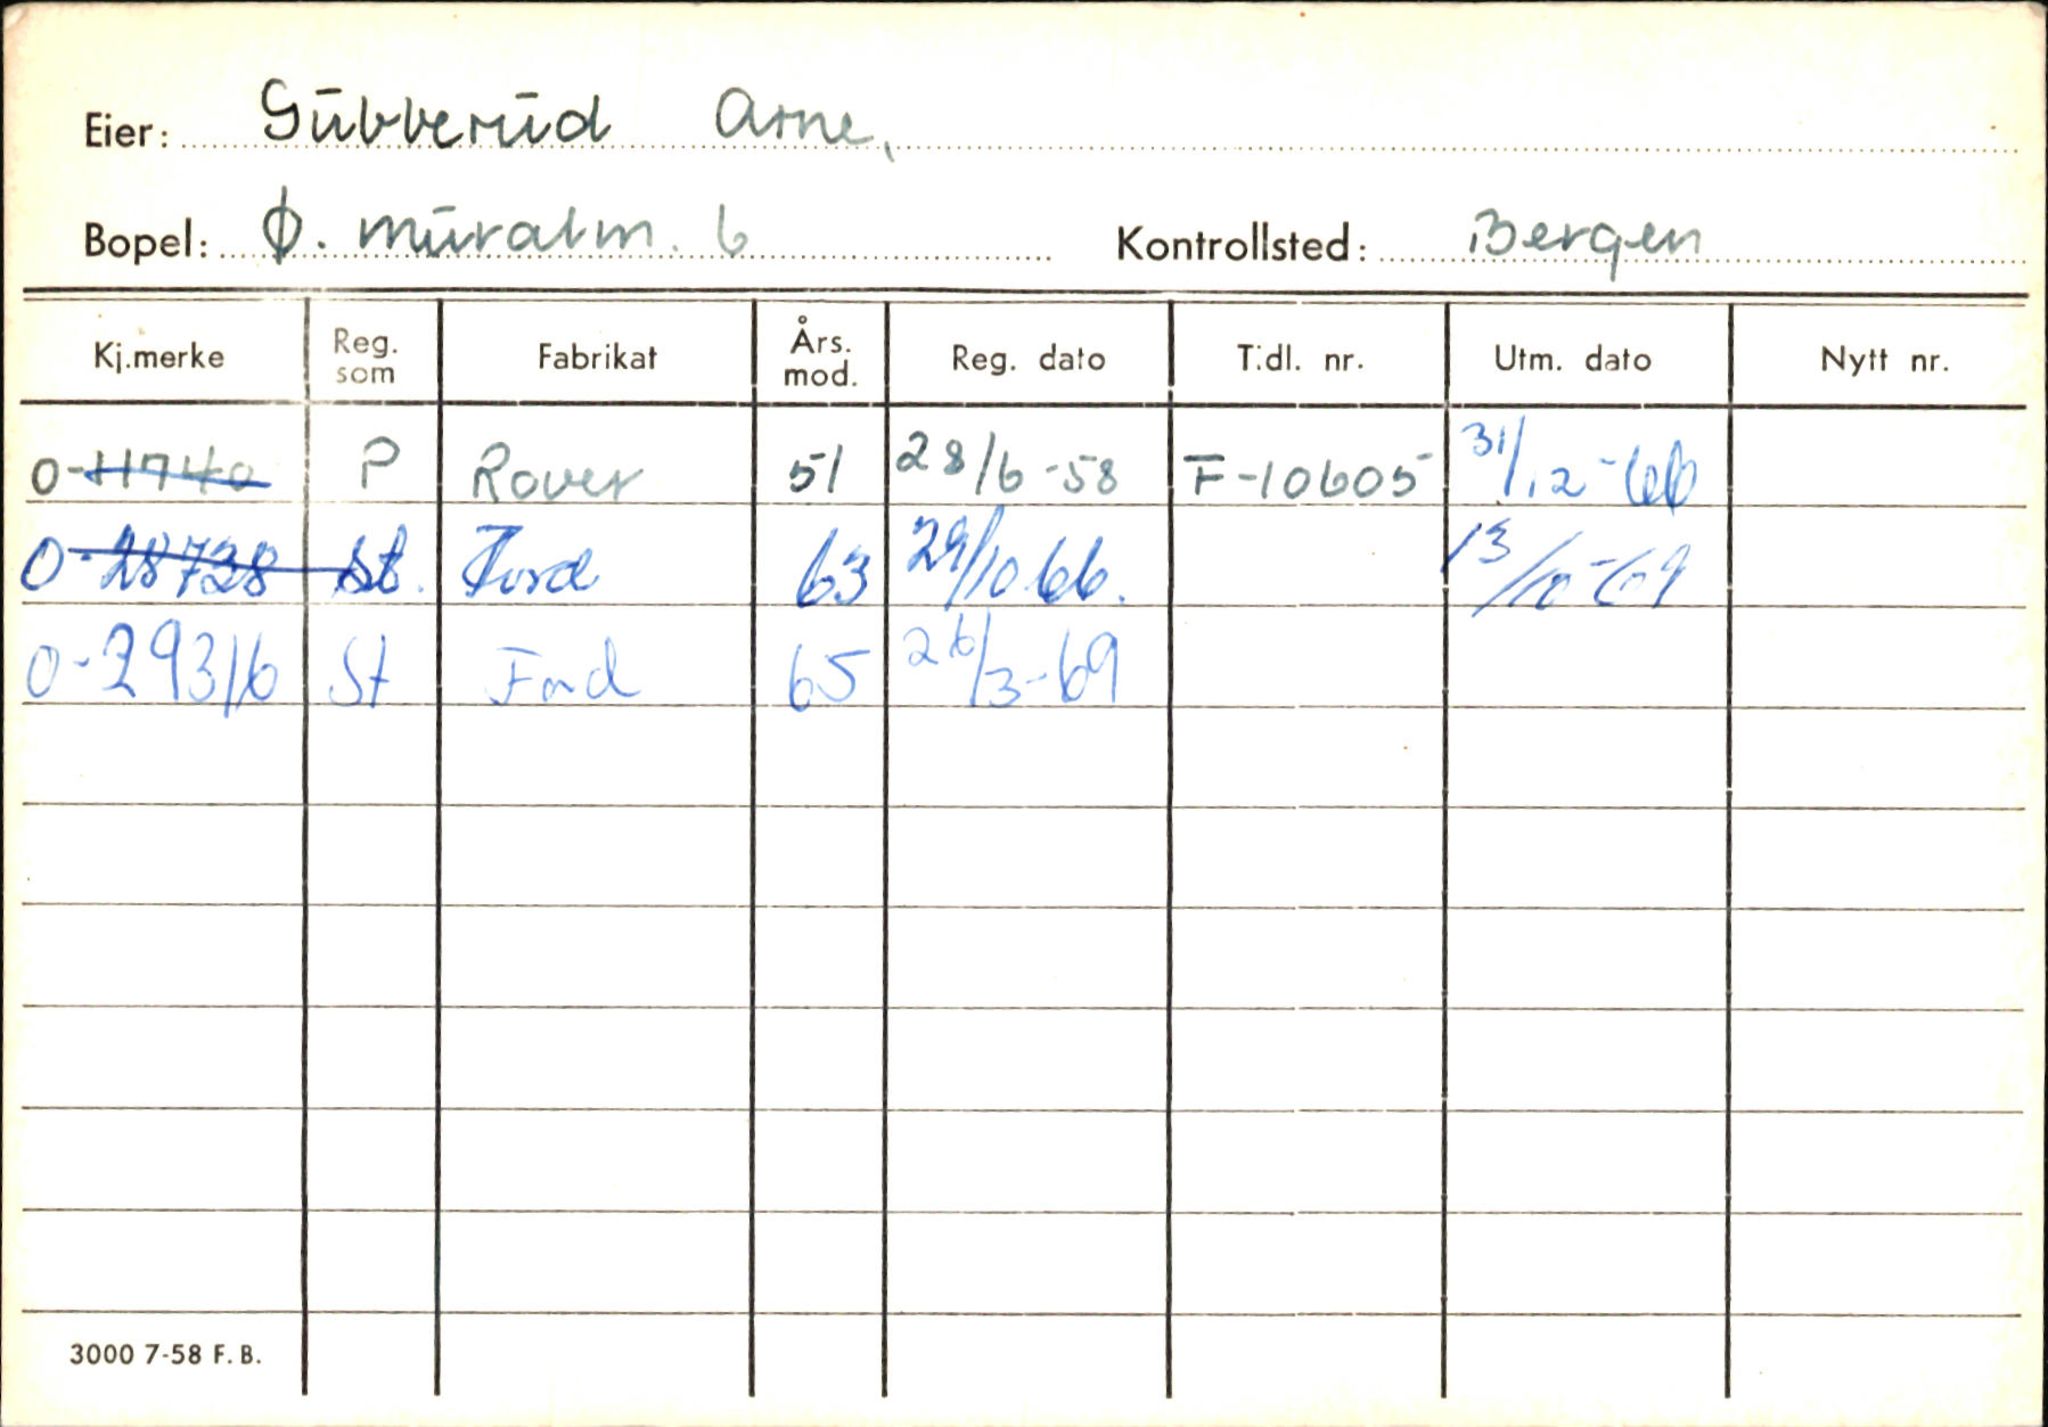 Eier: Gubberud Arne,
Bopel: Ø. Muralm. 6 Kontrollsted: Bergen
Kj.merke Reg. som Fabrikat Års. mod. Reg. dato Tidl. nr. Utm. dato Nytt nr.
O-11740 P Rover 51 28/6-58 F-10605 31/12-66
O-28728 St. Ford 63 29/10 66. 13/10-69
O-29316 St Ford 65 26/3-69
3000 7-58 F. B.